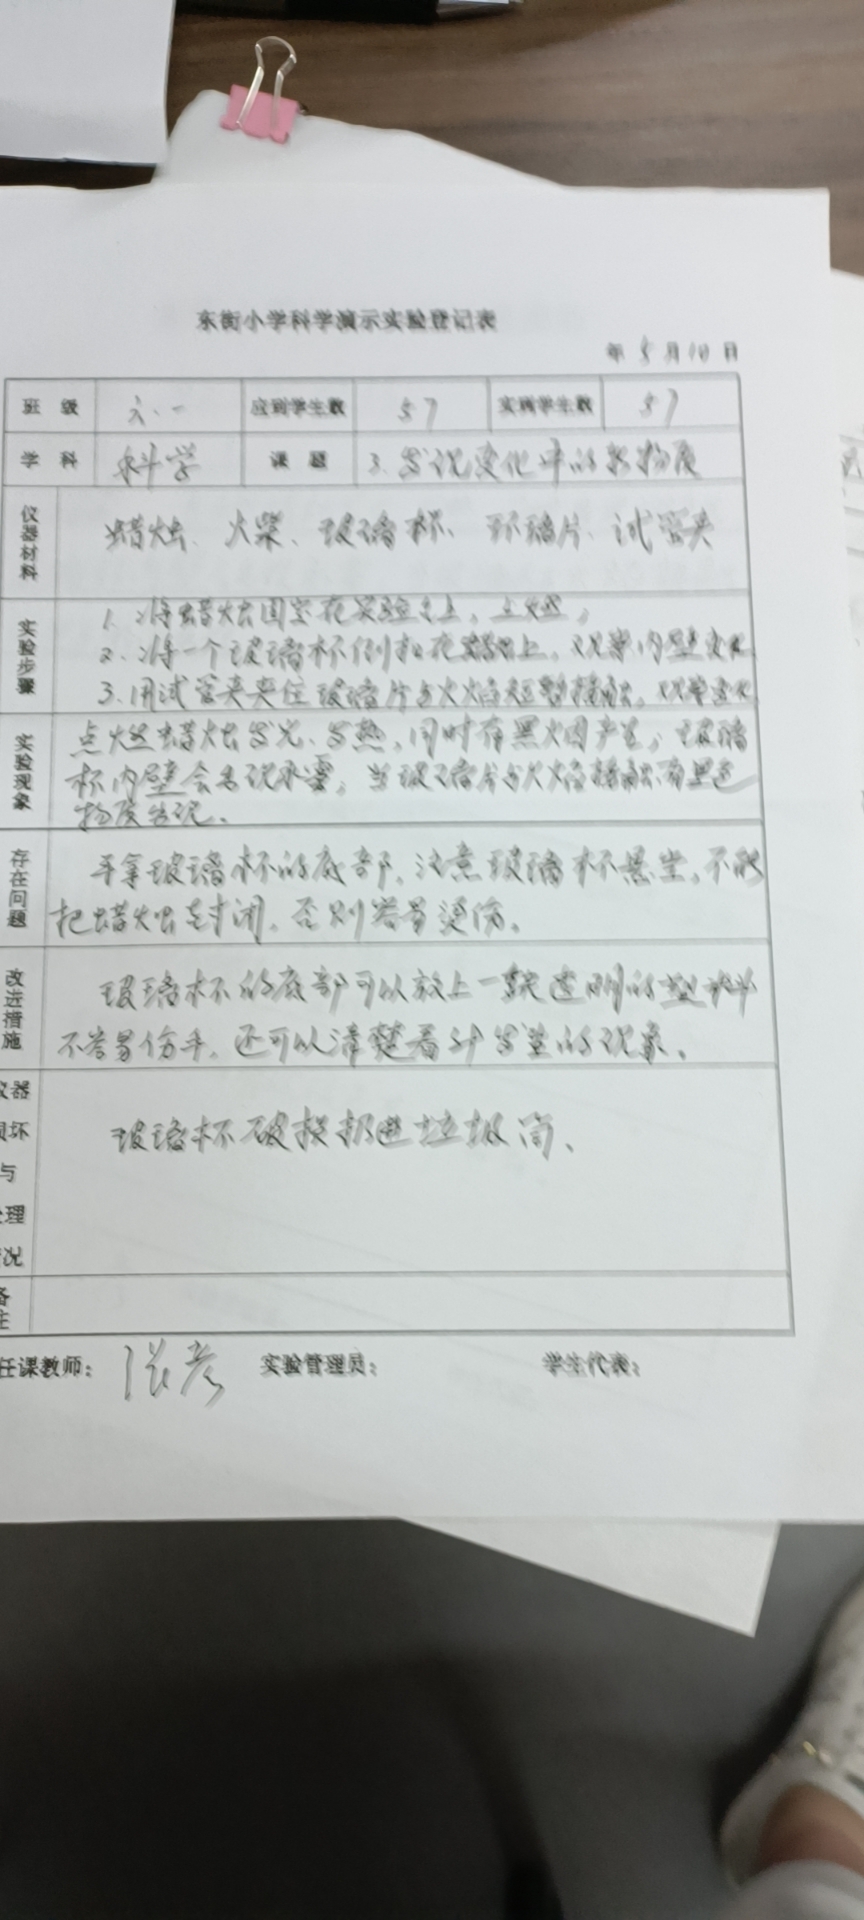 东街小学科学演示实验登记表
年 5 月 10 日
班 级 六·一 应到学生数 57 实到学生数 57
学 科 科学 课 题 3.发现变化中的新物质
仪器材料 蜡烛、火柴、玻璃杯、玻璃片、试管夹
实验步骤
1.将蜡烛固定在实验台上,点燃;
2.将一个玻璃杯倒扣在蜡烛上,观察内壁变化
3.用试管夹夹住玻璃片与火焰短暂接触,观察变化
实验现象
点燃蜡烛发光、发热,同时有黑烟产生;玻璃
杯内壁会出现水雾;当玻璃片与火焰接触有黑色
物质出现。
存在问题
手拿玻璃杯的底部,注意玻璃杯悬空,不能
把蜡烛封闭,否则容易烫伤。
改进措施
玻璃杯的底部可以放上一款透明的塑料
不容易伤手,还可以清楚看到发生的现象。
仪器
损坏
与
处理
情况
玻璃杯破损扔进垃圾筒、
备注
任课教师: 张彦 实验管理员: 学生代表: